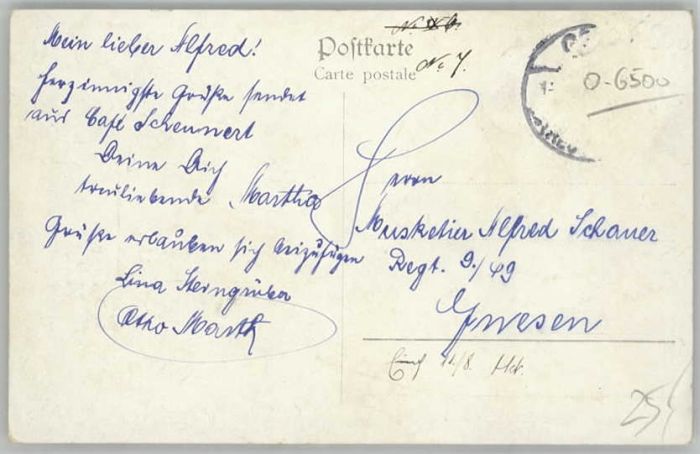 Mein lieber Alfred!
Herzinnigste Grüße sendet
aus Café Scheunert
Deine Dich
treuliebende Martha
Grüße erlauben sich beizufügen
Lina Steingrüber
Otto Marth
Postkarte
Carte postale
No 7.
0-6500
Herrn
Musketier Alfred Schauer
Regt. 9./49
Gnesen
25